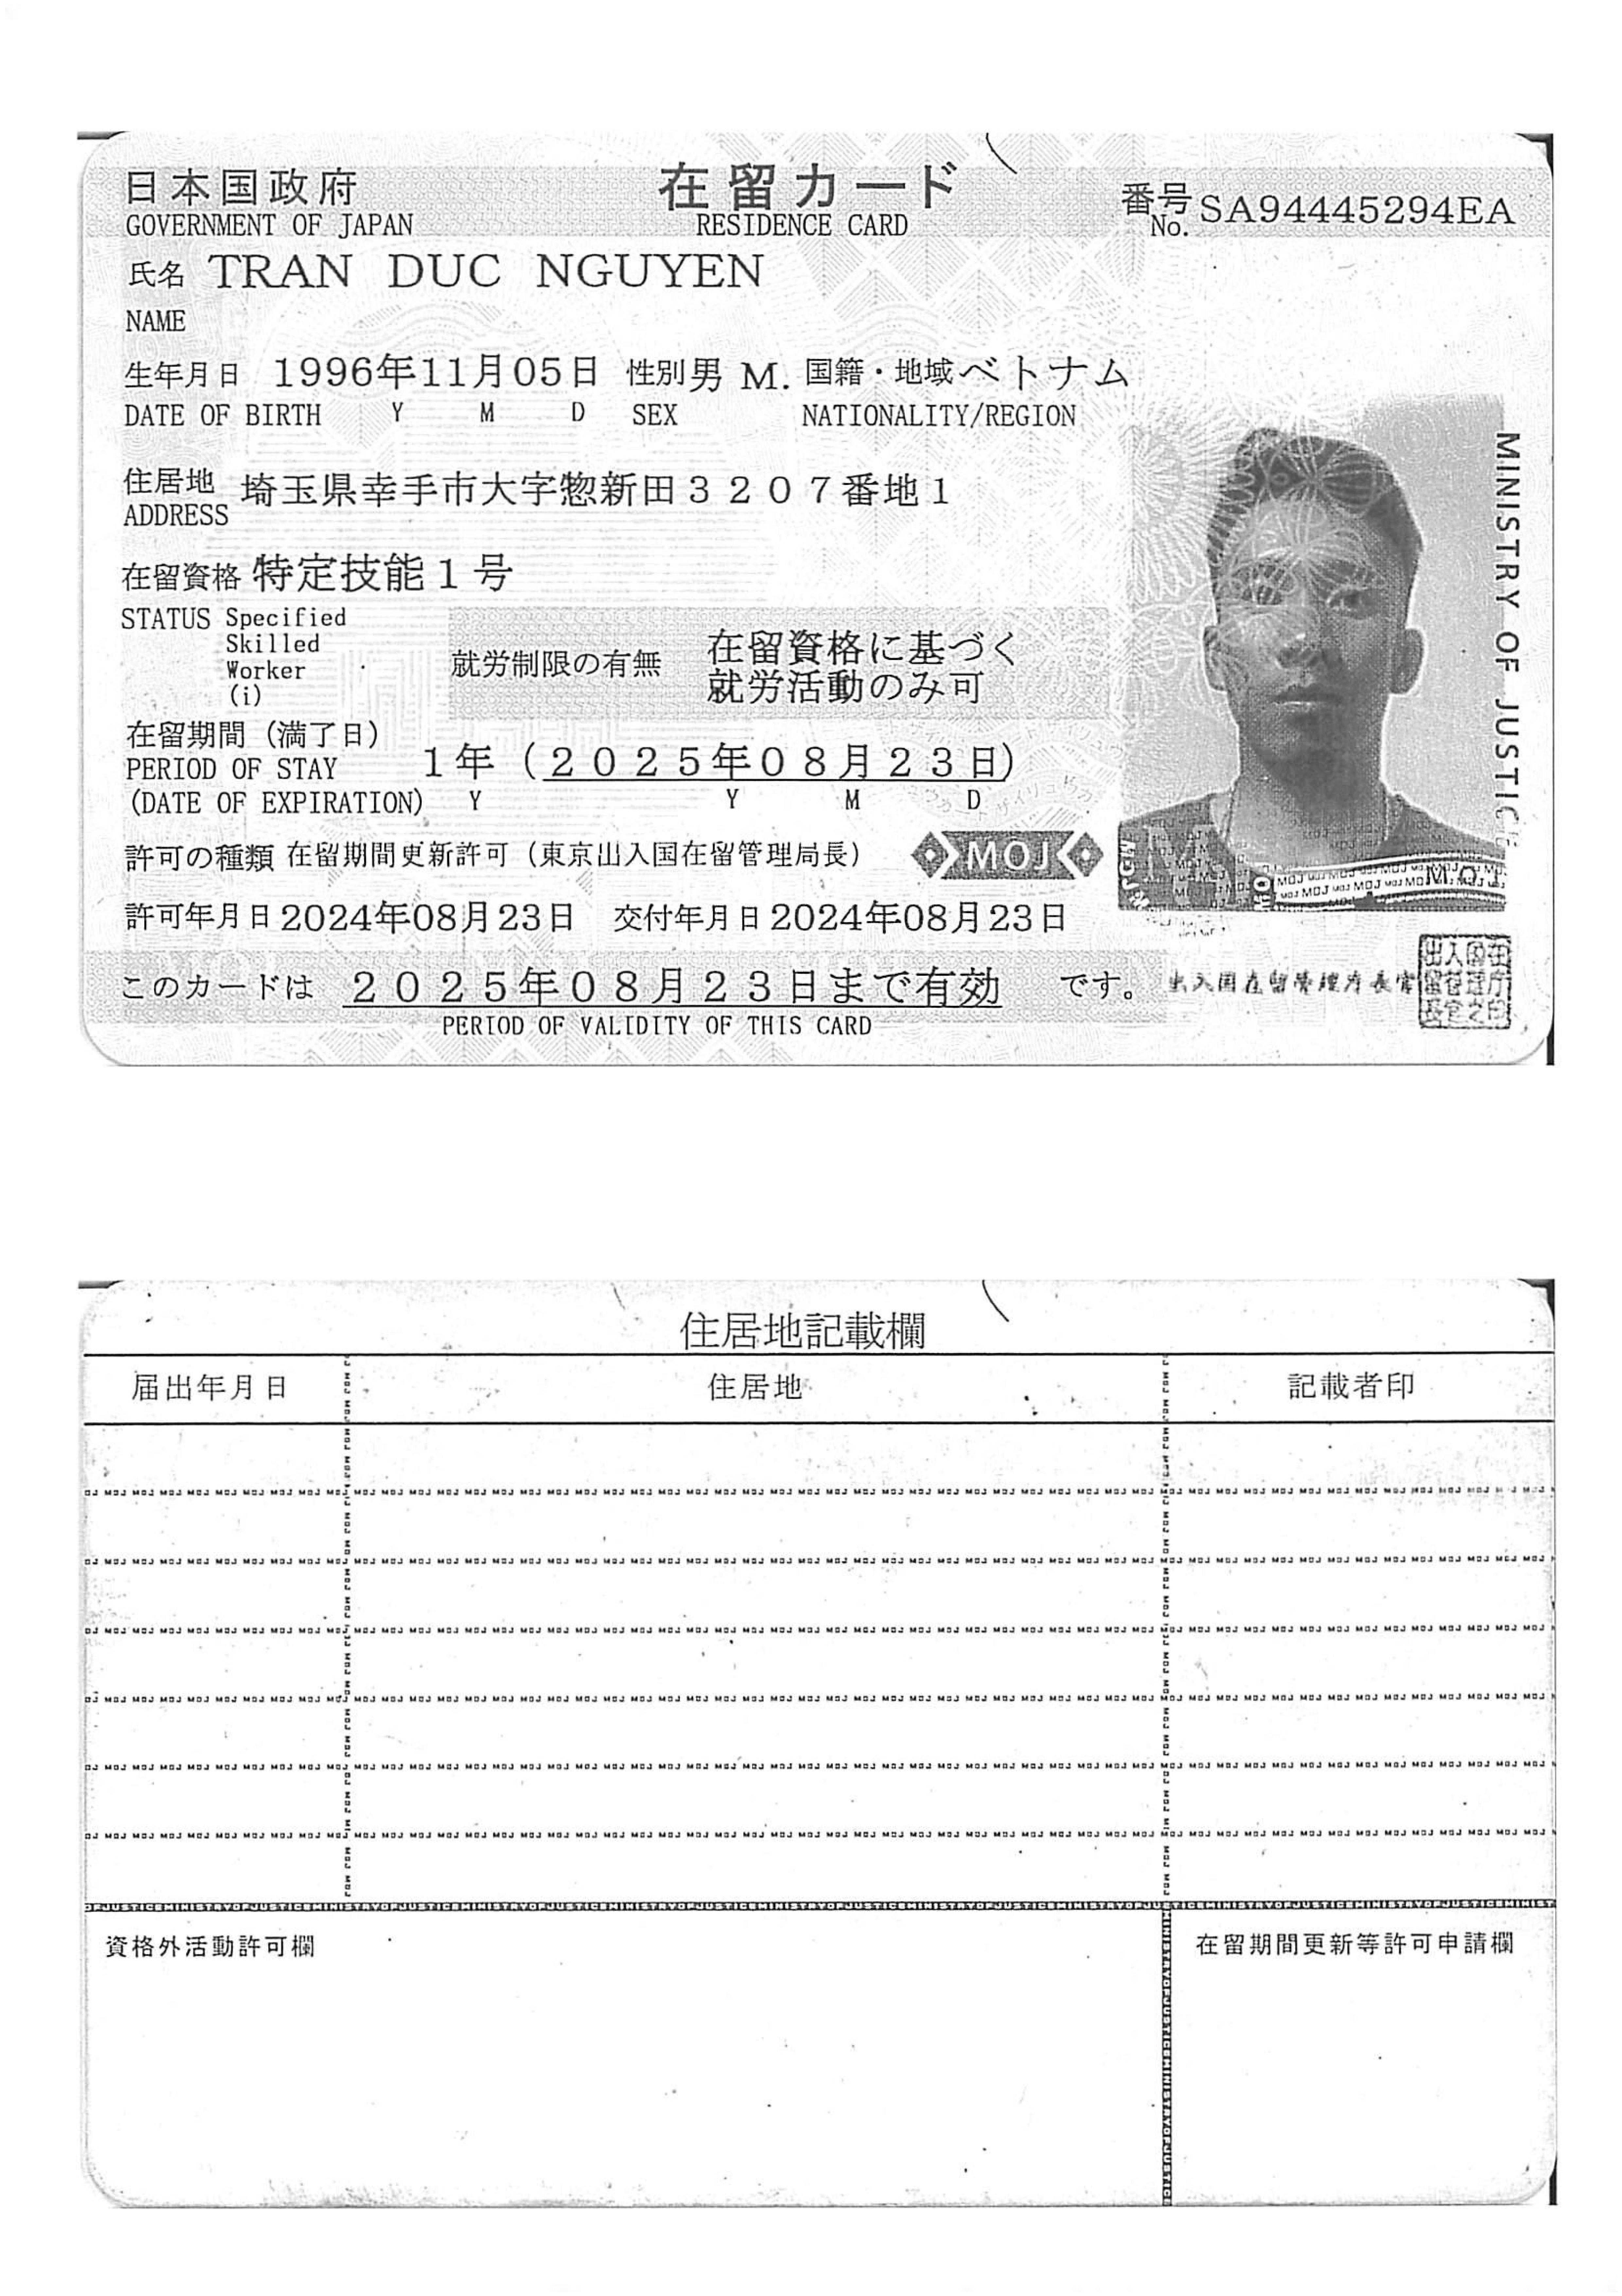 日本国政府 在留カード 番号 SA94445294EA
GOVERNMENT OF JAPAN RESIDENCE CARD No.
氏名 TRAN DUC NGUYEN
NAME
生年月日 1996年11月05日 性別 男 M. 国籍・地域 ベトナム
DATE OF BIRTH Y M D SEX NATIONALITY/REGION
住居地 埼玉県幸手市大字惣新田3207番地1
ADDRESS
在留資格 特定技能1号
STATUS Specified
Skilled
Worker
(i)
就労制限の有無 在留資格に基づく
就労活動のみ可
在留期間(満了日)
PERIOD OF STAY 1年(2025年08月23日)
(DATE OF EXPIRATION) Y Y M D
許可の種類 在留期間更新許可(東京出入国在留管理局長)
MOJ
許可年月日 2024年08月23日 交付年月日 2024年08月23日
このカードは 2025年08月23日まで有効 です。
PERIOD OF VALIDITY OF THIS CARD
出入国在留管理庁長官
MINISTRY OF JUSTIC
住居地記載欄
届出年月日 住居地 記載者印
資格外活動許可欄 在留期間更新等許可申請欄